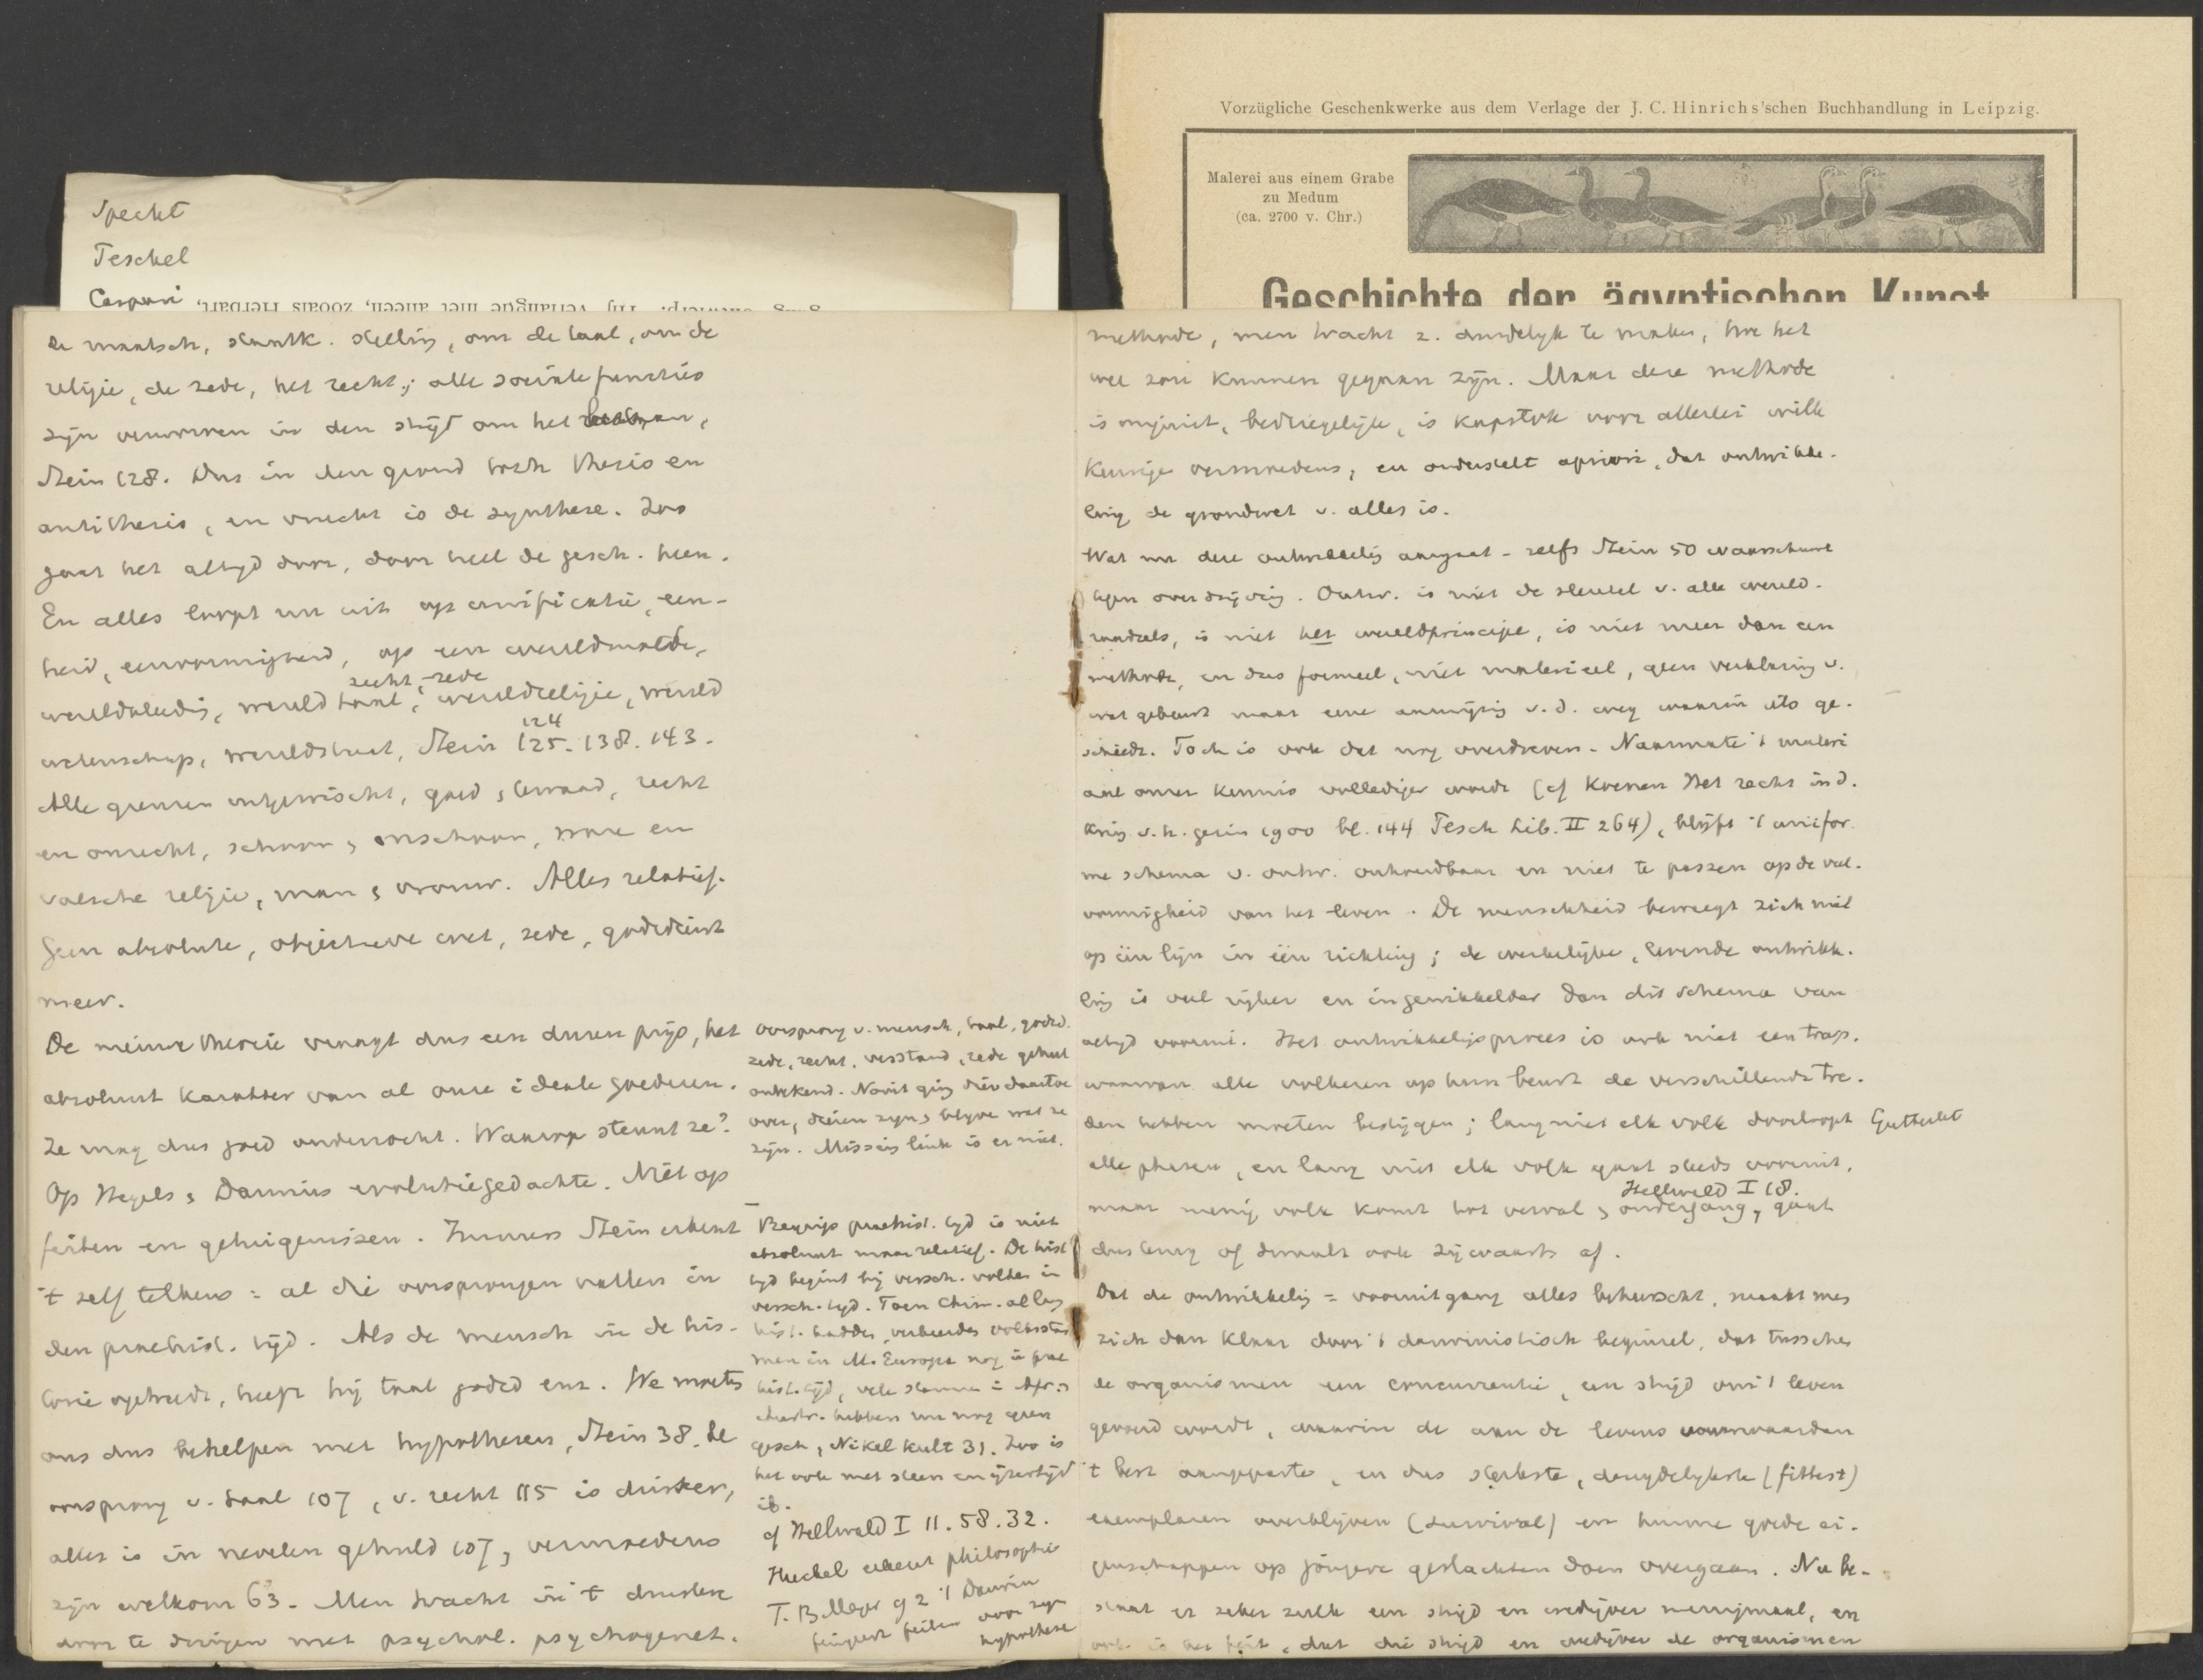 Vorzügliche Geschenkwerke aus dem Verlage der J. C. Hinrichs'schen Buchhandlung in Leipzig.
Malerei aus einem Grabe
zu Medum
(ca. 2700 v. Chr.)
Geschichte der ägyptischen Kunst
Specht
Peschel
Caspari
de maatsch, staatk. stelling, om de taal, om de
religie, de zede, het recht; alle sociale functies
zijn verworven in den strijd om het bestaan,
Stein 128. Dus in den grond botste thesis en
antithesis, en vrucht is de synthese. Zoo
gaat het altijd door, door heel de gesch. heen.
En alles loopt nu uit op unificatie, een-
heid, eenvormigheid, op een
recht, zede
wereldtaal, wereldreligie, wereld
wetenschap, wereldstaat, Stein 124 125. 138. 143.
Alle grenzen uitgewischt, goed & kwaad, recht
en onrecht, schoon & onschoon, ware en
valsche religie, man & vrouw. Alles relatief.
Geen absolute, objectieve wet, zede, godsdienst
meer.
De nieuwe theorie vraagt dus een duren prijs, het
absoluut karakter van al onze ideale goederen.
Ze mag dus goed onderzocht. Waarop steunt ze?
Op Hegels & Darwins evolutiegedachte. Niet op
feiten en getuigenissen. Immers Stein erkent
't zelf telkens: al die oorsprongen vallen in
den praehist. tijd. Als de mensch in de his-
torie optreedt, heeft hij taal godsd enz. We moeten
ons dus behelpen met hypothesen, Stein 38. de
oorsprong v. taal 107, v. recht 115 is duister,
alles is in nevelen gehuld 107, vermoedens
zijn welkom 63. Men tracht in 't duistere
door te dringen met psychol. psychogenet.
oorsprong v. mensch, taal, godsd.
zede, recht, verstand, rede geheel
onbekend. Nooit ging dier daartoe
over, dieren zijn & blijven wat ze
zijn. Missing link is er niet.
Begrip praehist. tijd is niet
absoluut maar relatief. De hist
tijd begint bij versch. volken in
versch. tijd. Toen Chin. al lang
hist. hadden, verkeerden volksstam
men in M. Europa nog in prae
hist. tijd, vele stammen in Afr. &
Austr. hebben nu nog geen
gesch, Nikel Kult 31. Zoo is
het ook met steen en ijzertijd
ib.
cf Hellwald I 11. 58. 32.
Haeckel erkent philosophie
hypothese
methode, men tracht z. duidelijk te maken, hoe het
wel zou kunnen gegaan zijn. Maar deze methode
is onjuist, bedriegelijk, is kapstok voor allerlei wille
keurige vermoedens, en onderstelt apriori, dat ontwikke-
ling de grondwet v. alles is.
Wat nu deze ontwikkeling aangaat - zelfs Stein 50 waarschuwt
tegen overdrijving. Ontw. is niet de sleutel v. alle wereld-
raadsels, is niet het wereldprincipe, is niet meer dan een
methode, en dus formeel, niet materieel, geen verklaring v.
wat gebeurt maar eene aanwijzing v. d. weg waarin iets ge-
schiedt. Toch is ook dat nog overdreven. Naarmate 't materi
aal onzer kennis vollediger wordt (cf Kuenen Het recht in d.
kring v. h. gezin 1900 bl. 144 Tesch Lib. II 264), blijft 't unifor-
me schema v. ontw. onhoudbaar en niet te passen op de veel-
vormigheid van het leven. De menschheid beweegt zich niet
op één lijn in één richting; de werkelijke, levende ontwikke-
ling is veel rijker en ingewikkelder dan dit schema van
altijd vooruit. Het ontwikkelingsproces is ook niet een trap,
waarvan alle volkeren op hun beurt de verschillende tre-
den hebben moeten bestijgen; lang niet elk volk doorloopt
alle phasen, en lang niet elk volk gaat steeds vooruit,
Hellwald I 18.
maar menig volk komt tot verval & ondergang, gaat
dus terug of dwaalt ook zijwaarts af.
Dat de ontwikkeling = vooruitgang alles beheerscht, maakt men
zich dan klaar door 't darwinistisch beginsel, dat tusschen
de organismen een concurrentie, een strijd om 't leven
gevoerd wordt, waarin de aan de levens voorwaarden
't best aangepaste, en dus sterkste, deugdelijkste (fittest)
exemplaren overblijven (survival) en hunne goede ei-
genschappen op jongere geslachten doen overgaan. Nu be-
staat er zeker zulk een strijd en wedijver menigmaal, en
ook is het feit, dat die strijd en wedijver de organismen